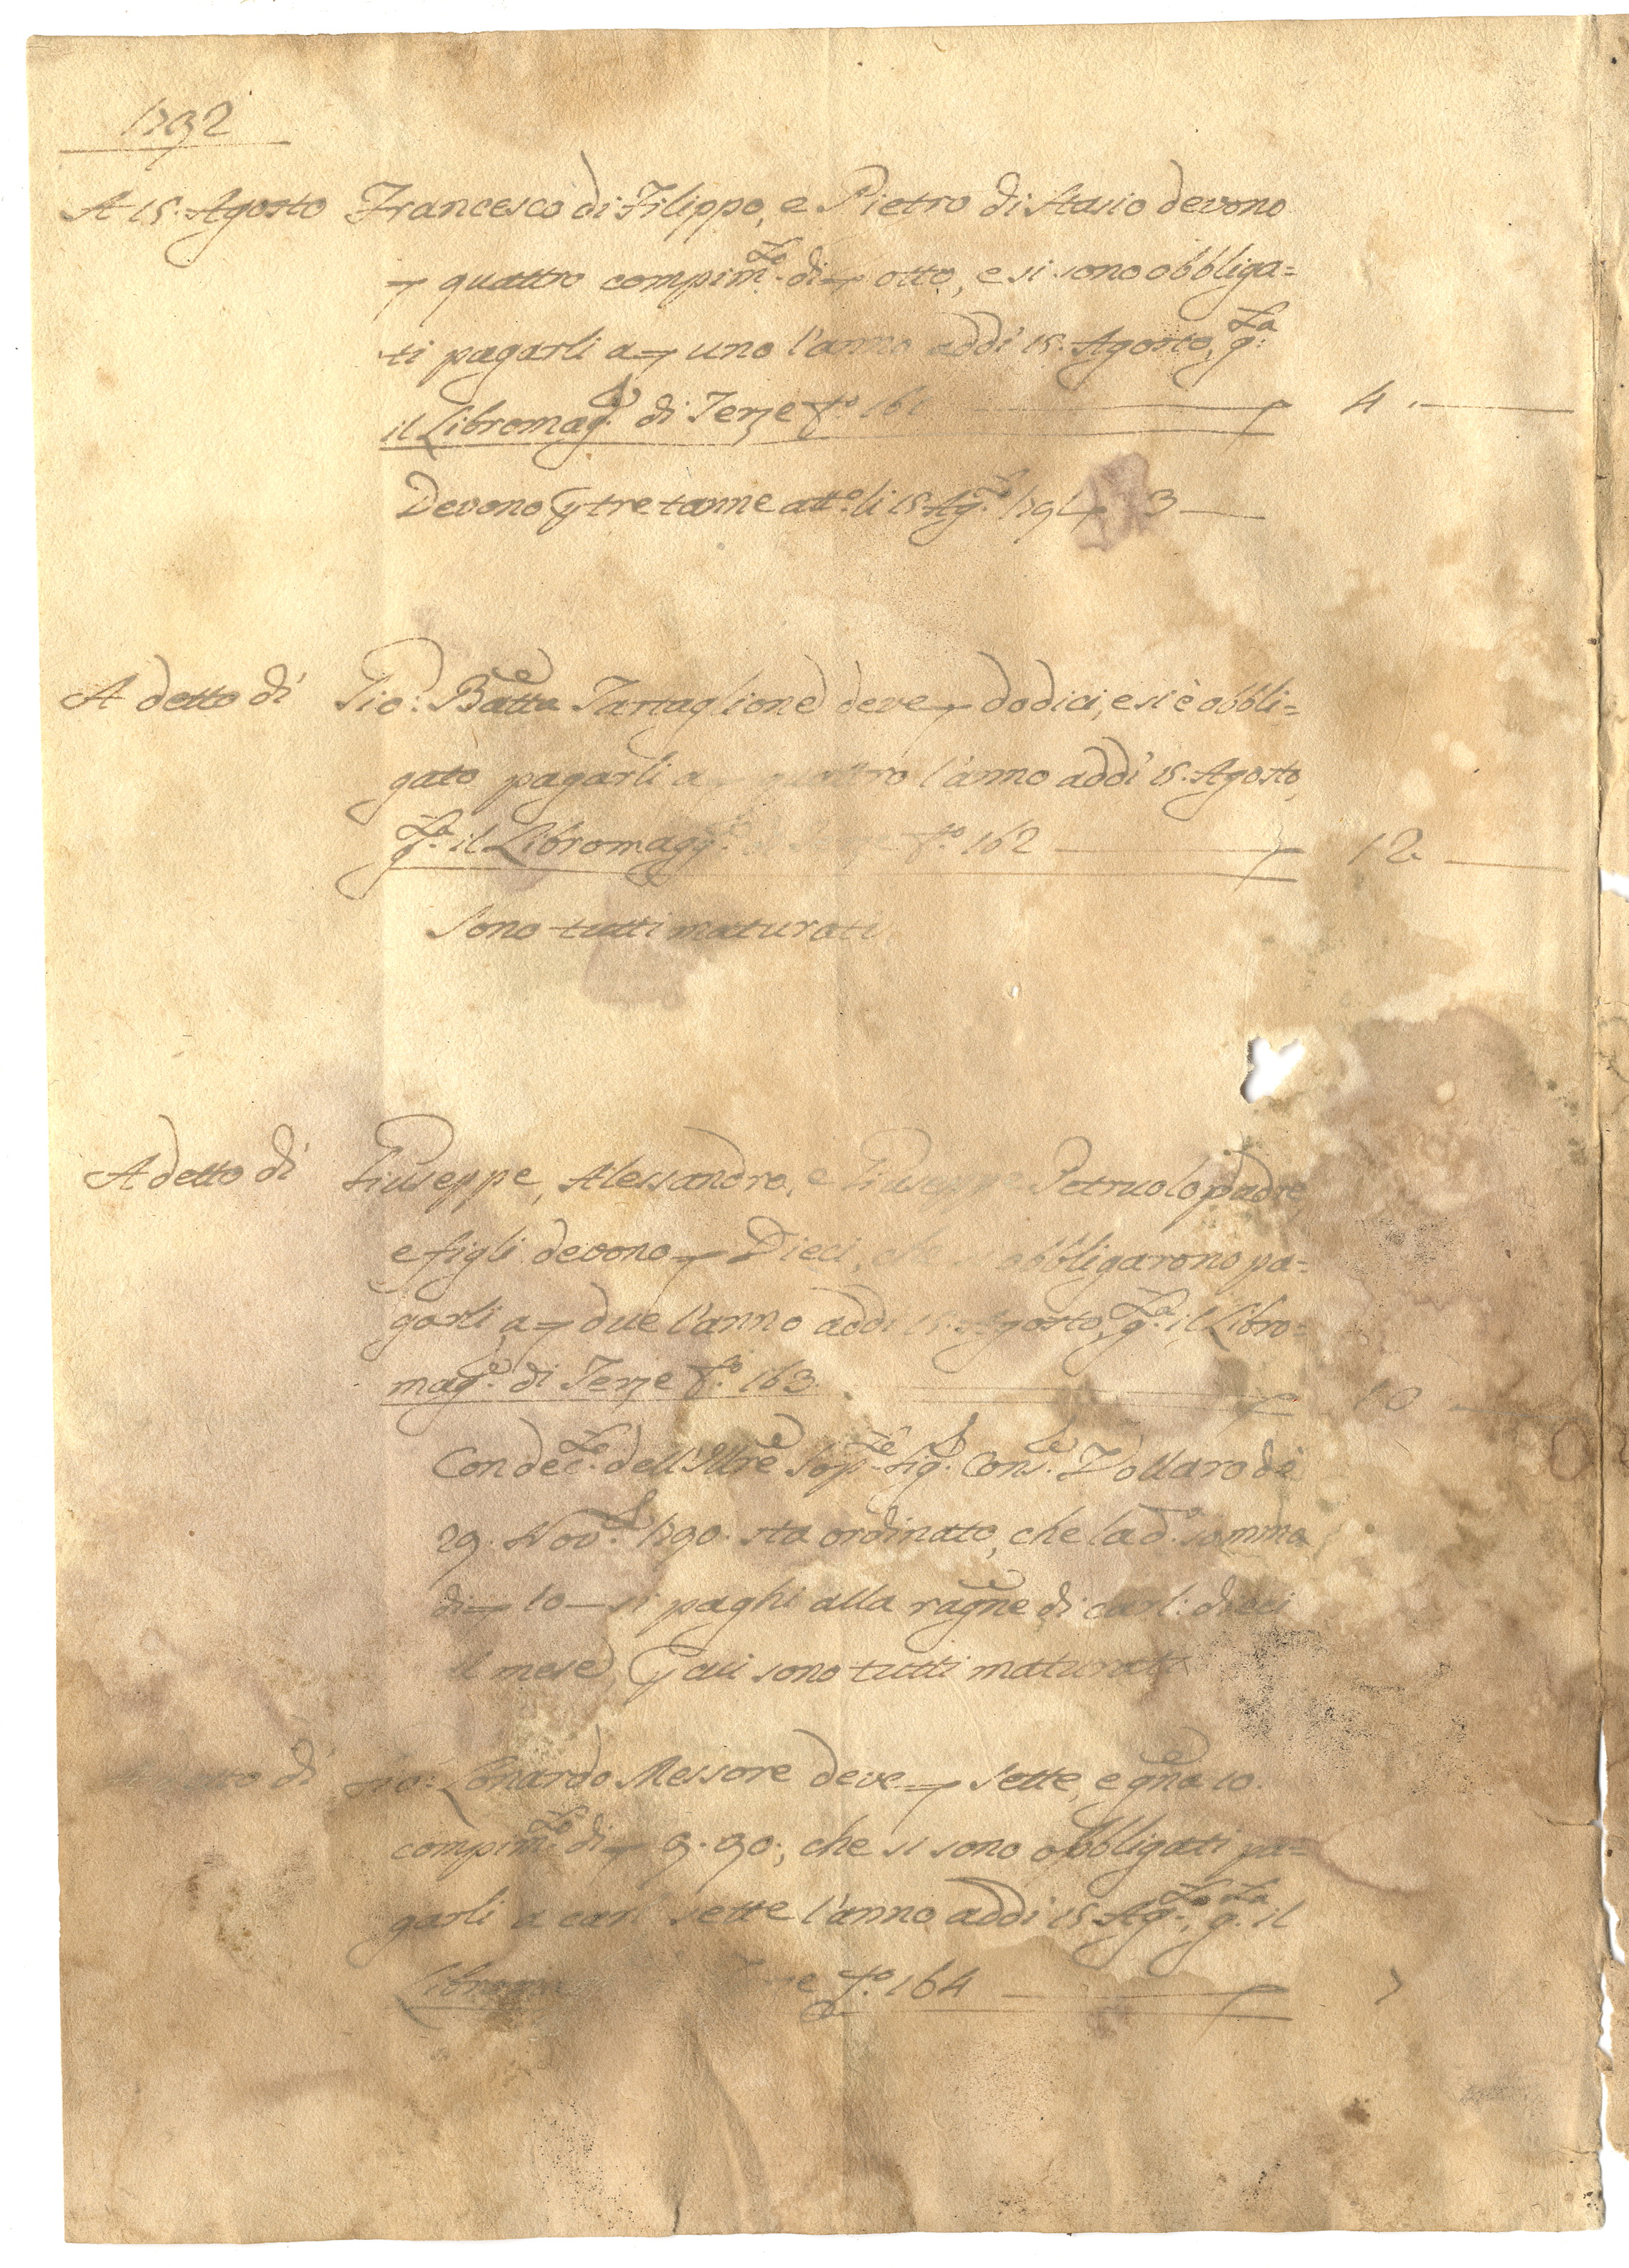 1792
A 15. Agosto Francesco di Filippo, e Pietro di Stasio devono
quattro compim.to di otto, e si sono obbliga=
ti pagarli a uno l'anno addì 15. Agosto, g.ta
il Libromag.re di Terze f.o 161 4.
Devono p tre tanne att.o li 15 Ag.to 1794 3
A detto dì Gio: Batta Tartaglione deve dodici, e si è obbli=
gato pagarli a quattro l'anno addì 15. Agosto,
g.ta il Libromagg.re di Terze f.o 162 12.
Sono tutti maturati
A detto dì Giuseppe, Alessandro, e Giuseppe Petruolo padre,
e figli devono Dieci, che obbligarono pa=
garli a due l'anno addì 15. Agosto, g.ta il Libro=
mag.e di Terze f.o 163. 10
Con dec.to dell'Ill.re Sop.te Sig.r Cons.e Vollaro de
29. Nov.e 1790. sta ordinato, che la d.a somma
di 10 si paghi alla ragne di carl: dieci
il mese, p cui sono tutti maturati
A detto dì Gio: Lonardo Messore deve sette, e gña 10.
compim.to di 9.90., che si sono obbligati pa=
garli a carl sette l'anno addì 15 Ag.to, g.ta il
Libromag Terze f.o 164 7